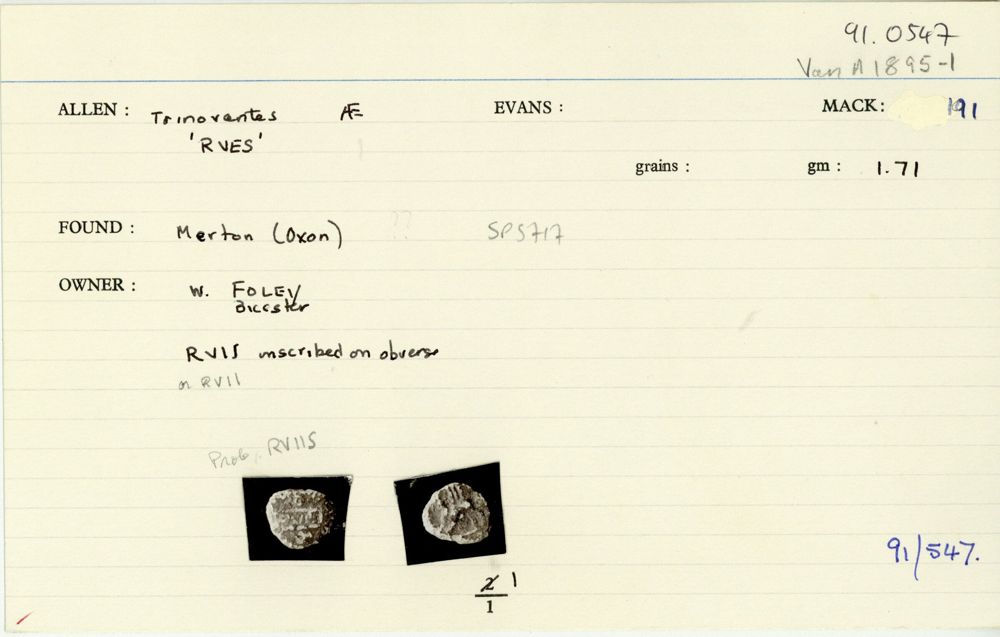 91.0547
Van A 1895-1
ALLEN : Trinovantes Æ EVANS : MACK: 191
'RVES'
grains : gm : 1.71
FOUND : Merton (Oxon) ?? SP5717
OWNER : W. FOLEY
Bicester
RVIS inscribed on obverse
or RVII
Prob. RVIIS
91/547.
2 1
1